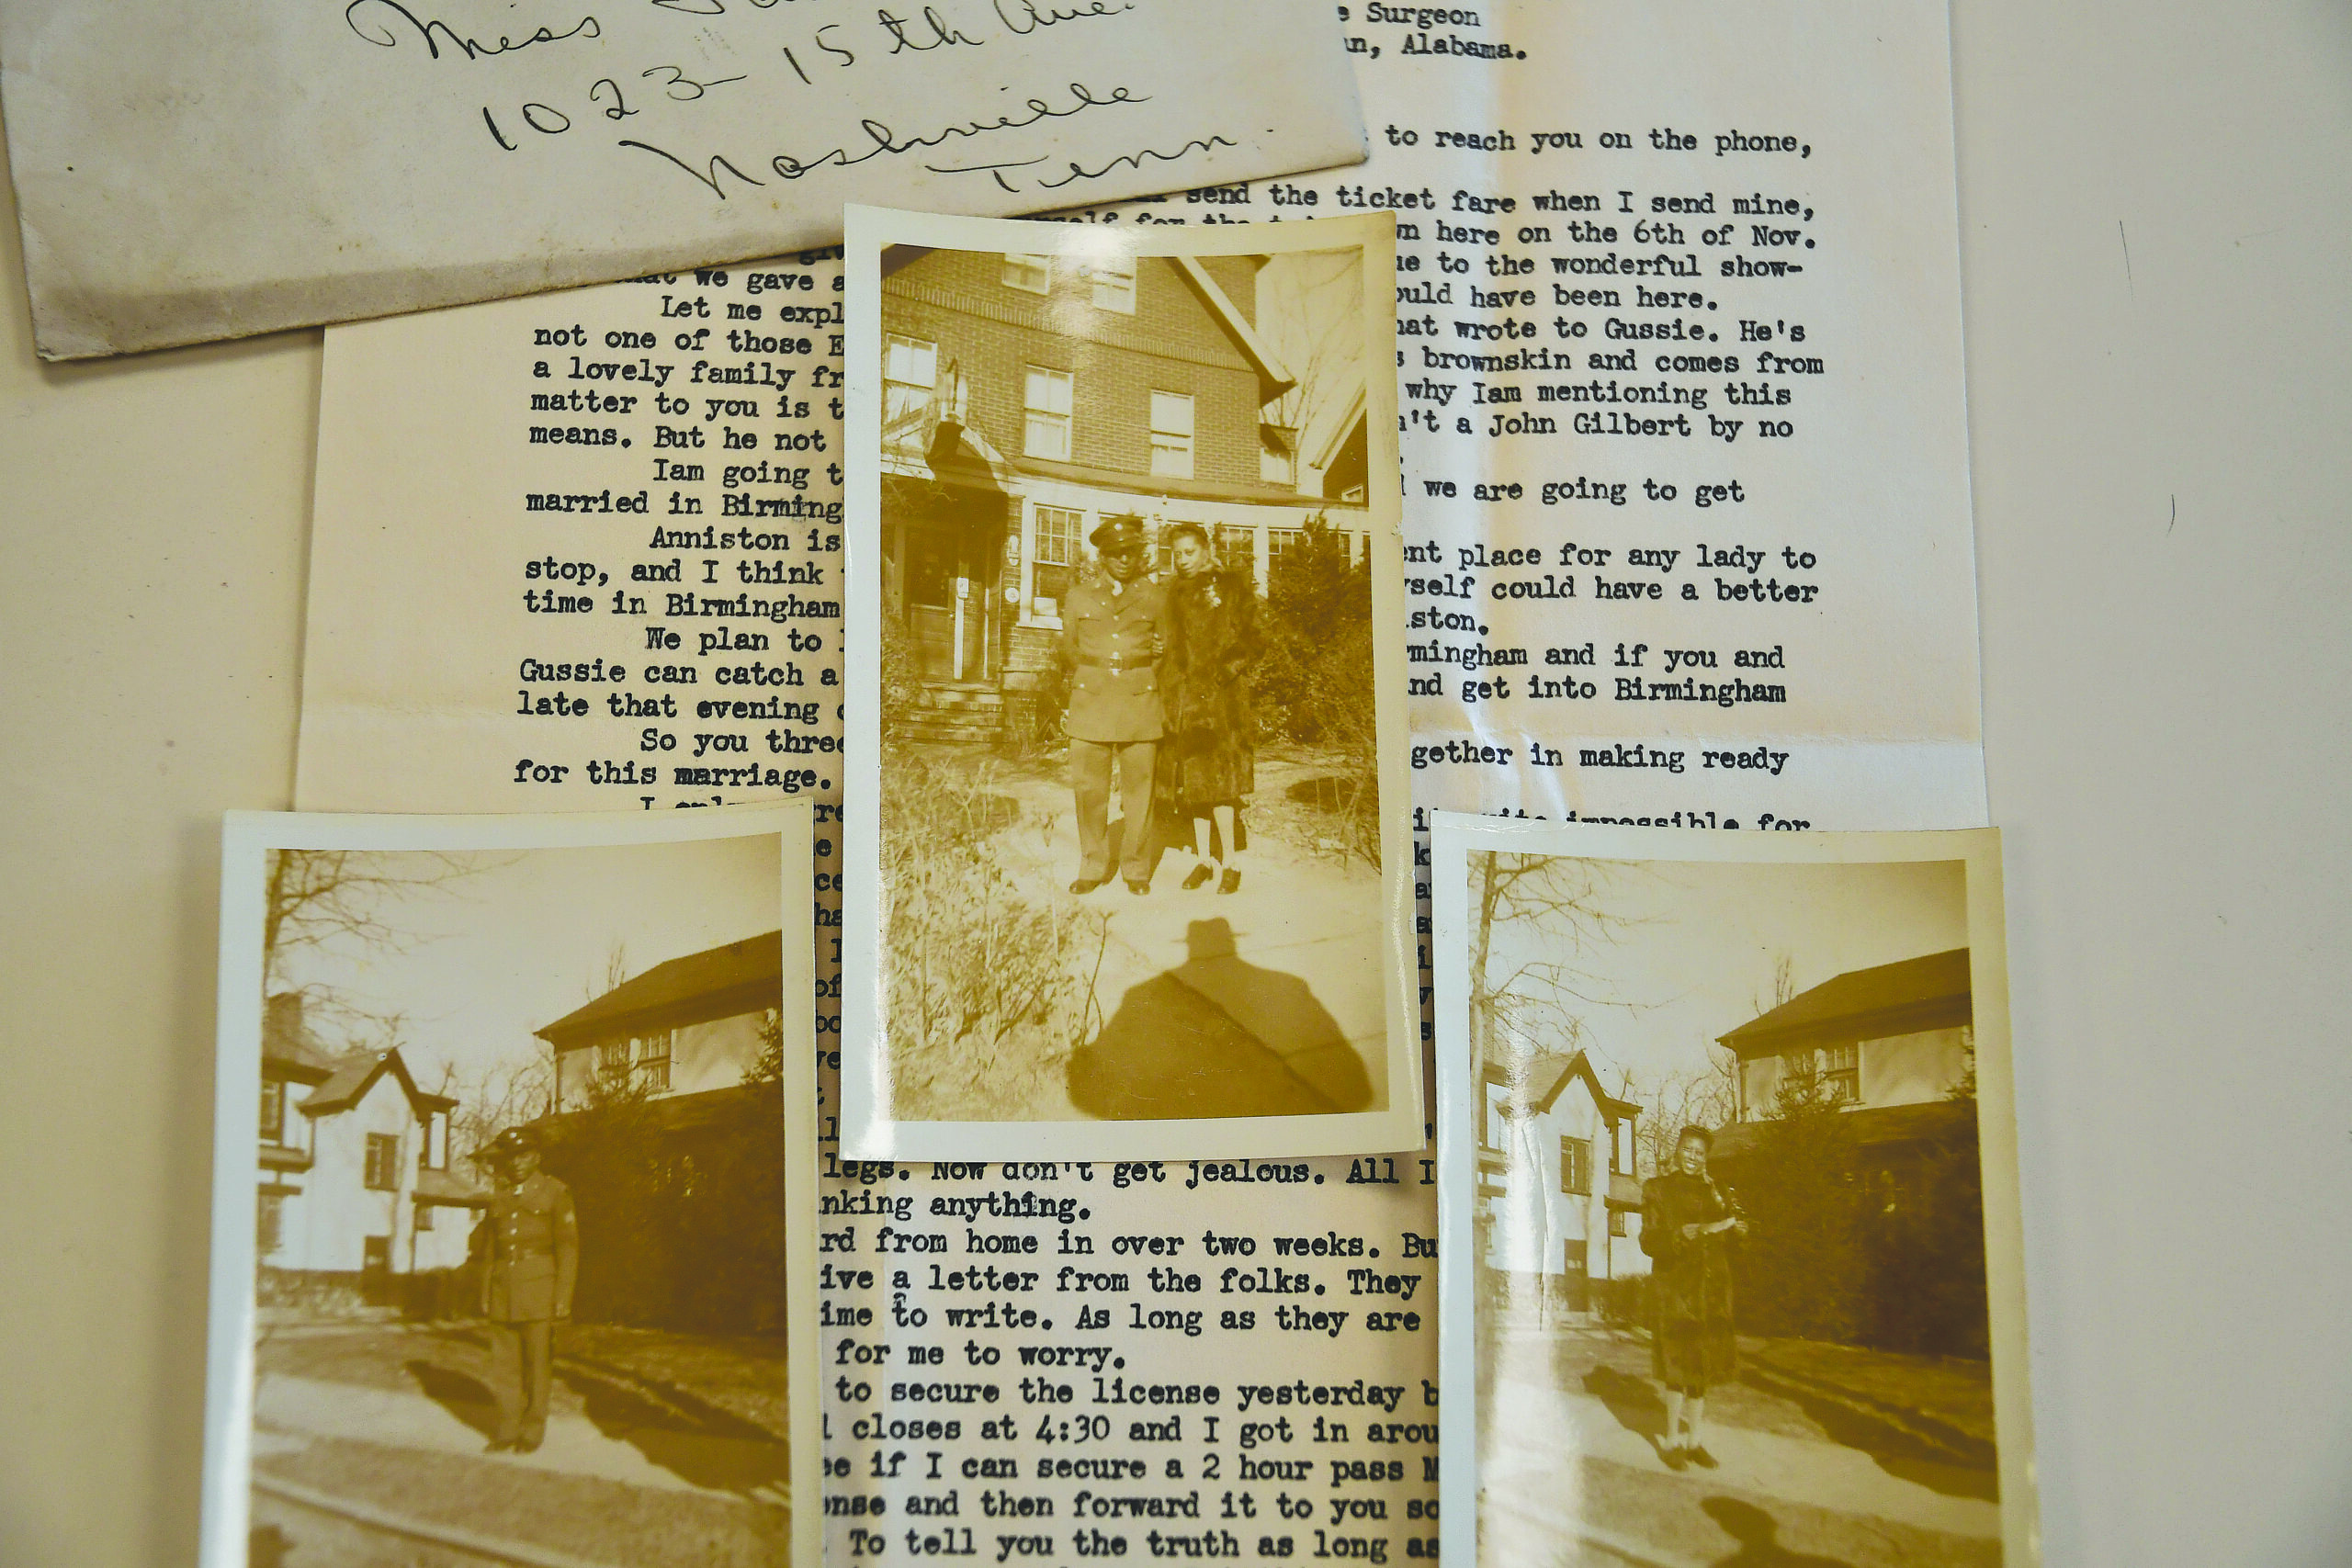 Miss
1023-15th Ave.
Nashville
Tenn.
Surgeon
Alabama.
to reach you on the phone,
send the ticket fare when I send mine,
for the
here on the 6th of Nov.
to the wonderful show-
we gave a
have been here.
Let me expl
wrote to Gussie. He's
not one of those E
brownskin and comes from
a lovely family fr
why Iam mentioning this
matter to you is t
n't a John Gilbert by no
means. But he not
Iam going t
we are going to get
married in Birming
Anniston is
ent place for any lady to
stop, and I think
yself could have a better
time in Birmingham
iston.
We plan to
rmingham and if you and
Gussie can catch a
nd get into Birmingham
late that evening
So you three
gether in making ready
for this marriage.
I
quite impossible for
legs. Now don't get jealous. All I
nking anything.
rd from home in over two weeks. Bu
ive a letter from the folks. They
ime to write. As long as they are
for me to worry.
to secure the license yesterday b
closes at 4:30 and I got in arou
if I can secure a 2 hour pass M
ense and then forward it to you so
To tell you the truth as long as